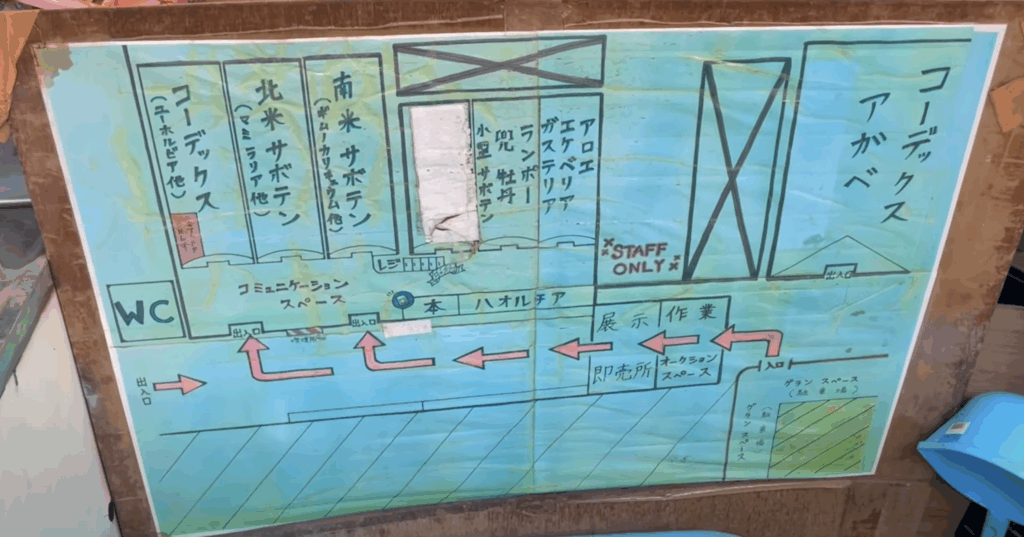 コーデックス
(ユーホルビア他)
北米サボテン
(マミラリア他)
南米サボテン
(ギムノカリキウム他)
アロエ
エケベリア
ガステリア
ランポー
兜 牡丹
小型サボテン
コーデックス
アガベ
STAFF
ONLY
レジ
出入口
コミュニケーション
スペース
WC
本
ハオルチア
出入口
出入口
展示
作業
即売所
オークション
スペース
入口
出入口
グランスペース
(駐車場)
グランスペース
(駐車場)